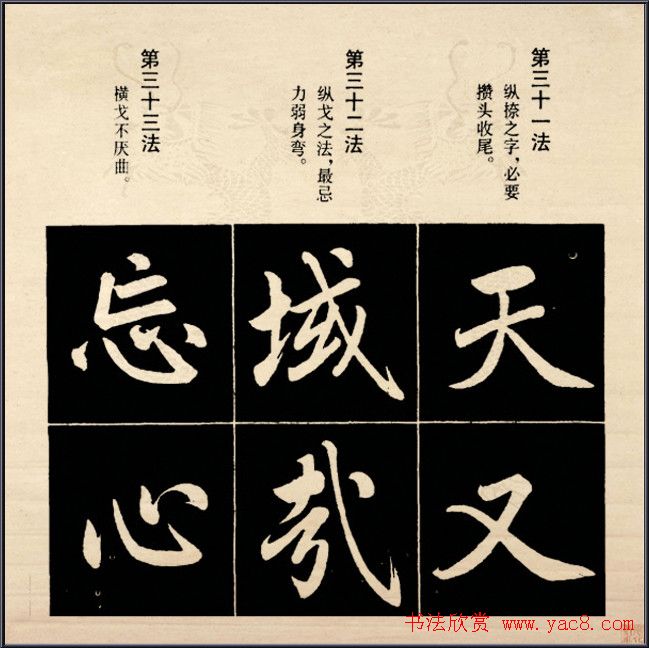 第三十一法
纵捺之字，必要
攒头收尾。
第三十二法
纵戈之法，最忌
力弱身弯。
第三十三法
横戈不厌曲。
天
又
域
哉
忘
心
书法欣赏 www.yac8.com